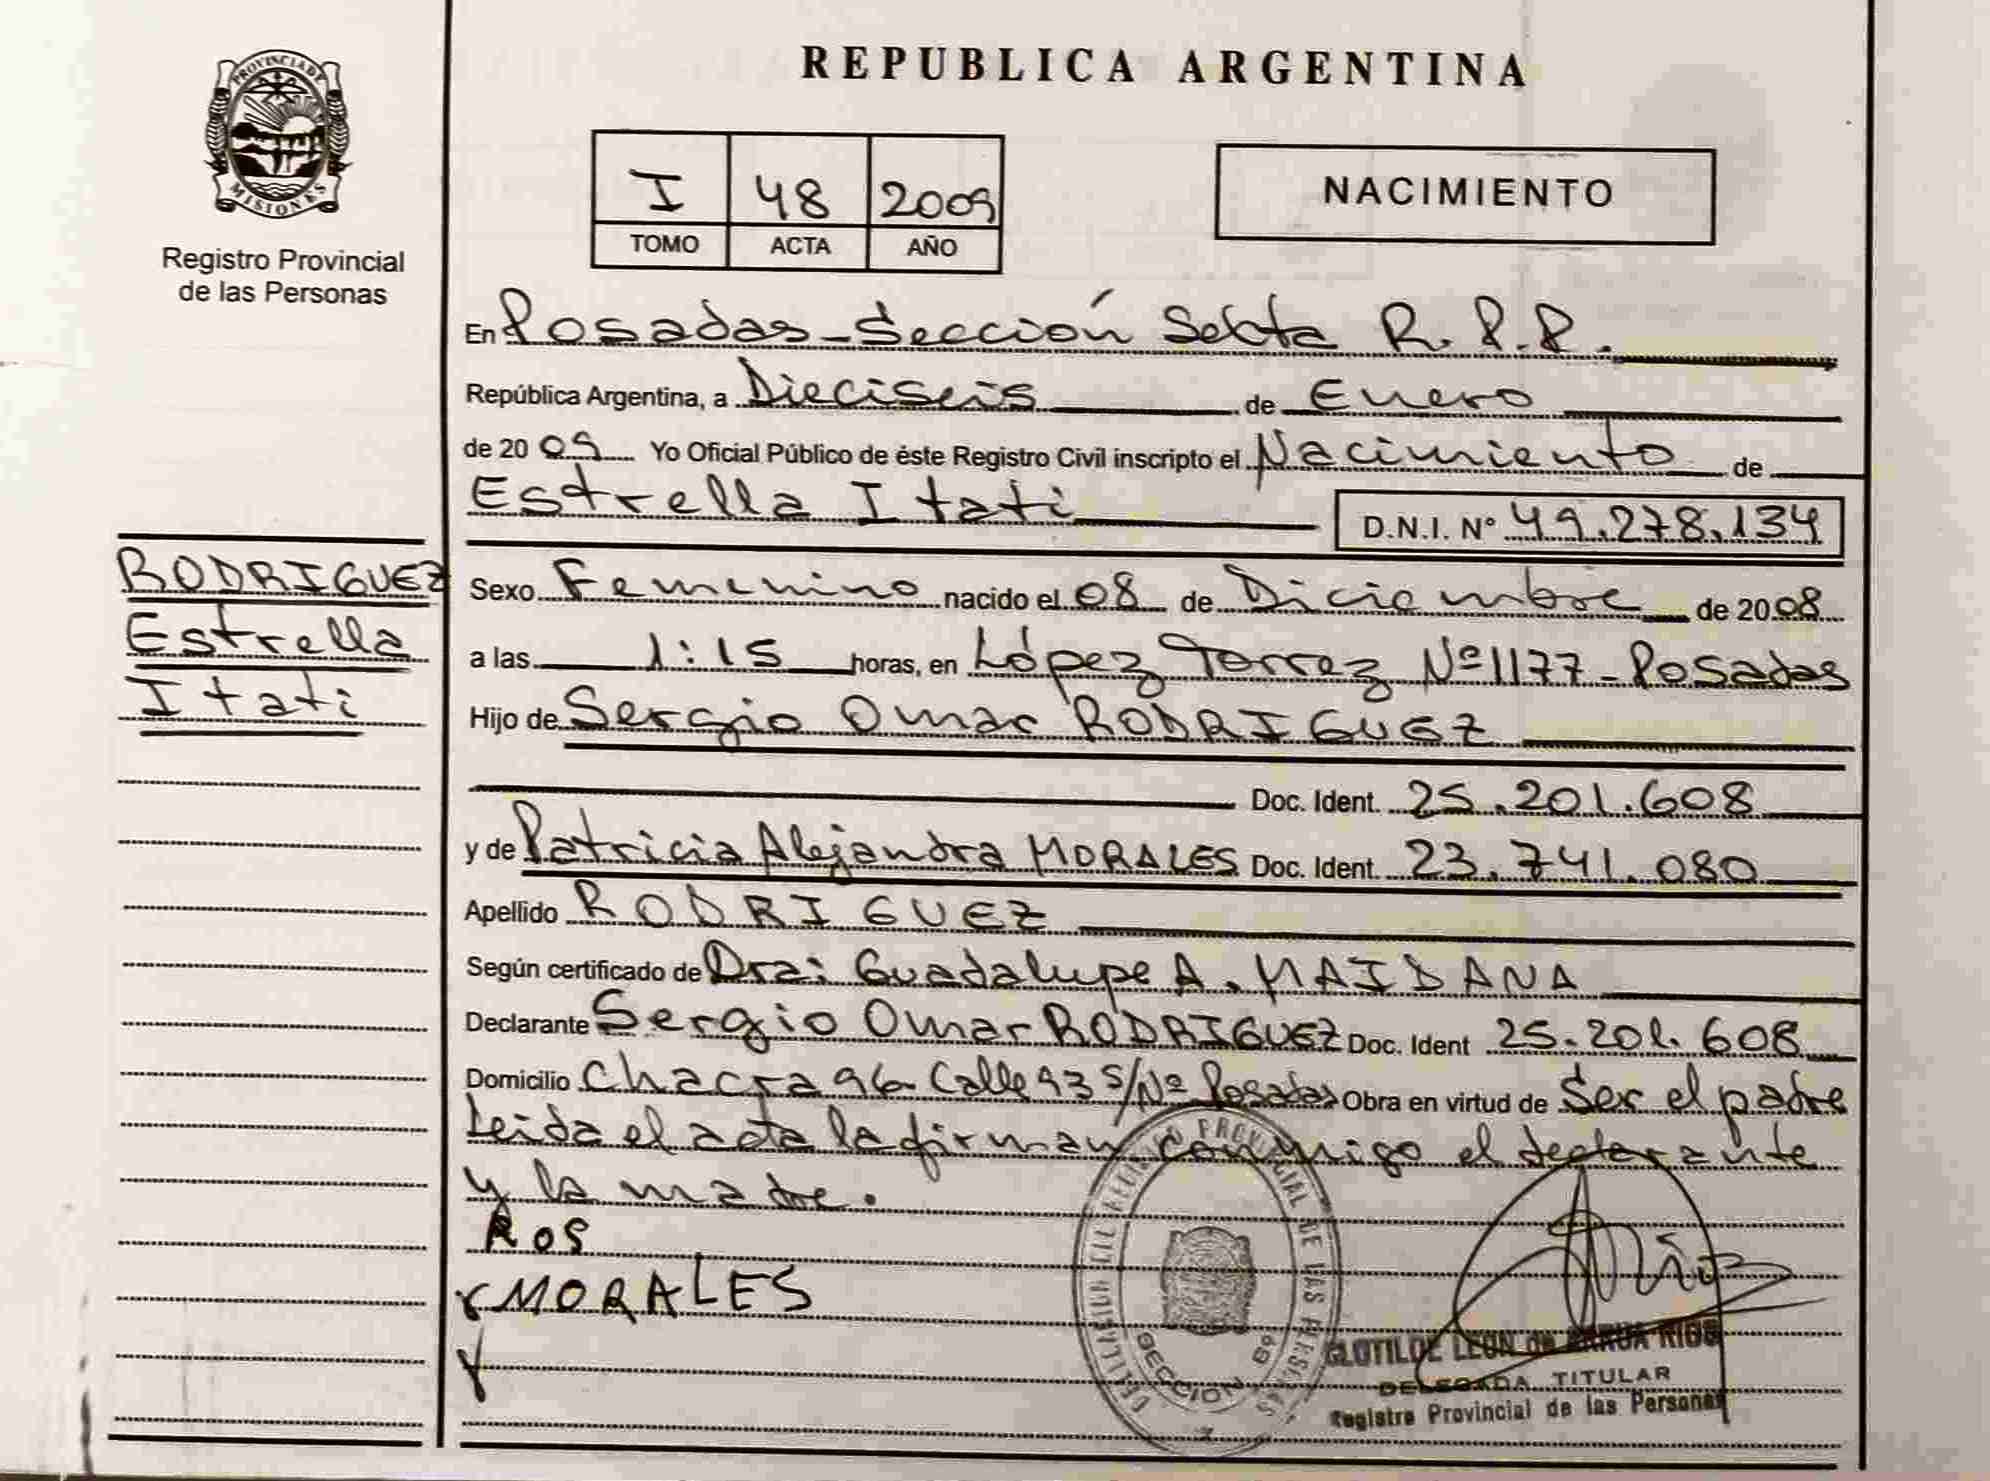 PROVINCIA DE
MISIONES
Registro Provincial
de las Personas
REPUBLICA ARGENTINA
I 48 2009
TOMO ACTA AÑO
NACIMIENTO
En Posadas - Sección Sexta R.P.P.
República Argentina, a Dieciseis de Enero
de 20 09 Yo Oficial Público de éste Registro Civil inscripto el Nacimiento de
Estrella Itati D.N.I. Nº 49.278.134
RODRIGUEZ
Estrella
Itati
Sexo Femenino nacido el 08 de Diciembre de 2008
a las 1:15 horas, en López Torrez Nº 1177 - Posadas
Hijo de Sergio Omar RODRIGUEZ
Doc. Ident. 25.201.608
y de Patricia Alejandra MORALES Doc. Ident. 23.741.080
Apellido RODRIGUEZ
Según certificado de Dra: Guadalupe A. MAIDANA
Declarante Sergio Omar RODRIGUEZ Doc. Ident 25.201.608
Domicilio Chacra 96 Calle 93 S/Nº Posadas Obra en virtud de Ser el padre
Leida el acta la firman conmigo el declarante
y la madre.
ROS
MORALES
PROVINCIAL DE LAS PERSONAS
SECCION 6º
CLOTILDE LEON de ARRUA RIOS
DELEGADA TITULAR
Registro Provincial de las Personas